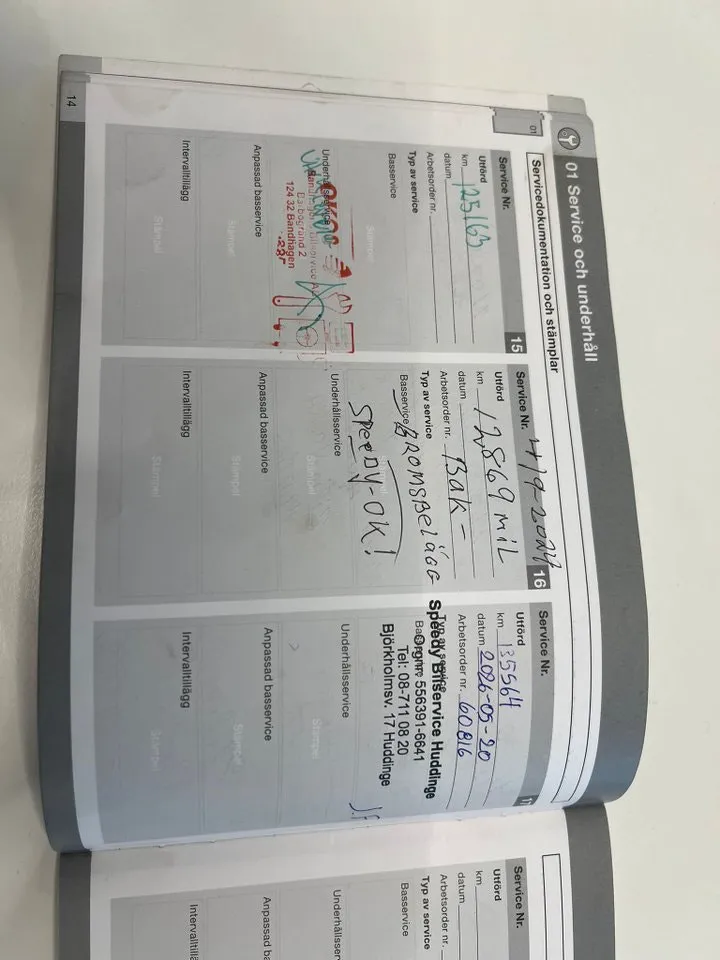 01 Service och underhåll
Servicedokumentation och stämplar
01
Service Nr. 15
Utförd
km 125163
datum
Arbetsorder nr.
Typ av service
Basservice
Stämpel
Underhållsservice
124 32 Bandhagen
Anpassad basservice
Stämpel
Intervalltillägg
Stämpel
Service Nr. 4/9-2024 16
Utförd
km 12869 MIL
datum
Arbetsorder nr. BAK-
Typ av service BROMSBELÄGG
Basservice
SPEEDY-OK!
Stämpel
Underhållsservice
Stämpel
Anpassad basservice
Stämpel
Intervalltillägg
Stämpel
Service Nr.
Utförd
km 135564
datum 2026-05-20
Arbetsorder nr. 60816
Typ av service
Speedy Bilservice Huddinge
Orgnr 556391-6641
Tel: 08-711 08 20
Björkholmsv. 17 Huddinge
Underhållsservice
Stämpel
Anpassad basservice
Stämpel
Intervalltillägg
Stämpel
14
Service Nr.
Utförd
km
datum
Arbetsorder nr.
Typ av service
Basservice